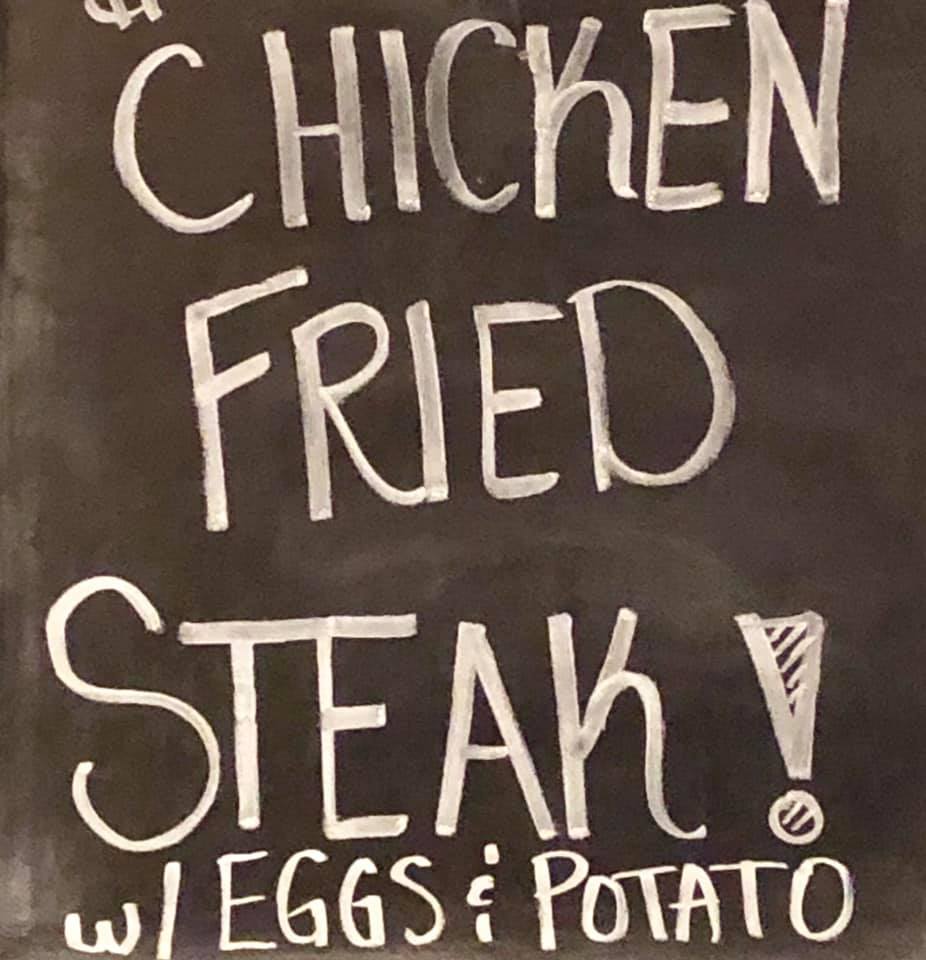 CHICKEN
FRIED
STEAK!
w/ EGGS & POTATO